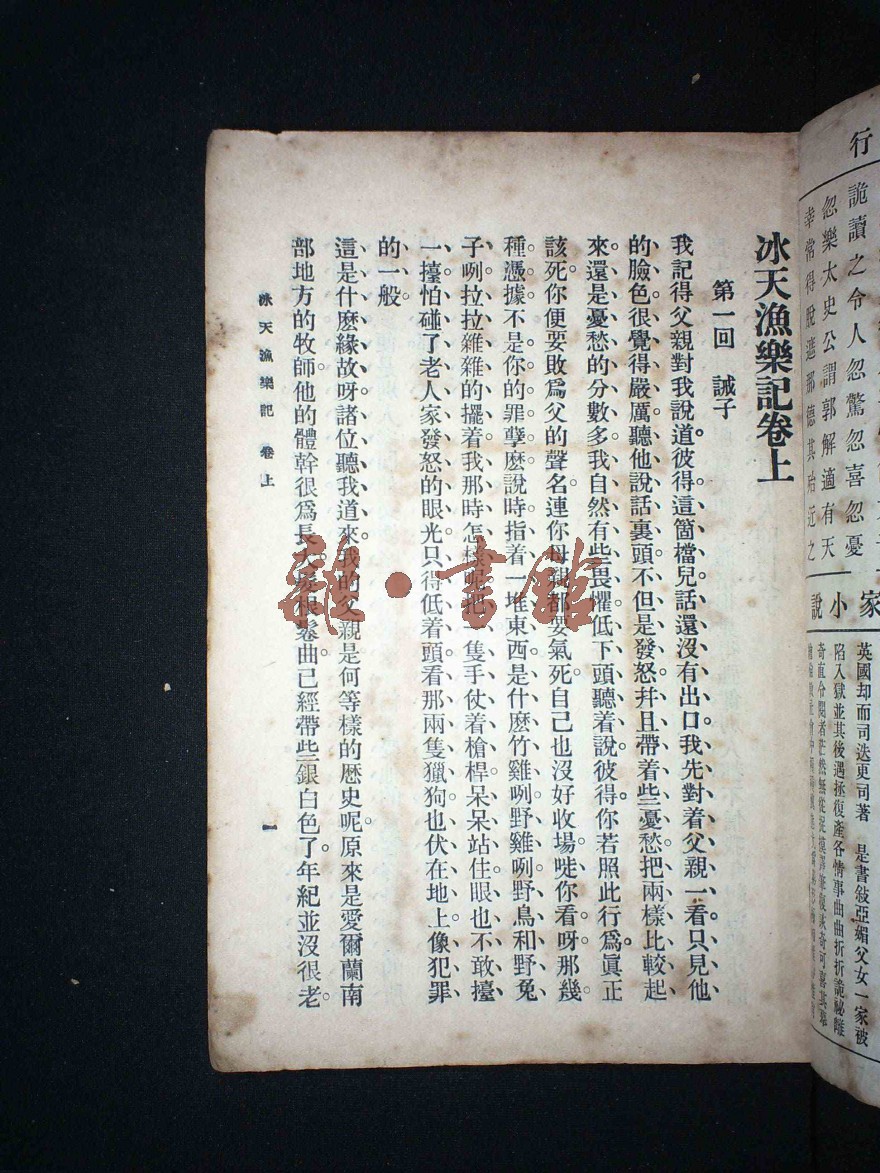 行
詭讀之令人忽驚忽喜忽憂
忽樂太史公謂郭解適有天
幸常得脫遮那德其殆近之
家小說
英國却而司迭更司著　是書敍亞媚父女一家被
陷入獄並其後遇拯復產各情事曲曲折折詭祕離
奇直令閱者茫然無從捉摸
冰天漁樂記卷上
第一回　誡子
我記得父親對我說道彼得。這箇檔兒話還沒有出口我先對着父親一看只見他
的臉色很覺得嚴厲聽他說話裏頭不但是發怒幷且帶着些憂愁把兩樣比較起
來還是憂愁的分數多我自然有些畏懼低下頭聽着說彼得你若照此行爲眞正
該死。你便要敗爲父的聲名連你母親都要氣死自己也沒好收場嘥你看呀那幾
種憑據。不是你的罪孽麼說時指着一堆東西是什麽竹雞咧野雞咧野鳥和野兔
子咧拉拉雜雜的擺着我那時怎樣呢把一隻手仗着槍桿呆呆站住眼也不敢擡
一擡怕碰了老人家發怒的眼光只得低着頭看那兩隻獵狗也伏在地上像犯罪
的一般
這是什麽緣故呀諸位聽我道來我的父親是何等樣的歷史呢。原來是愛爾蘭南
部地方的牧師。他的體幹很爲長大。髮根鬈曲已經帶些銀白色了。年紀並沒很老。
冰天漁樂記　卷上
一
雜·書館